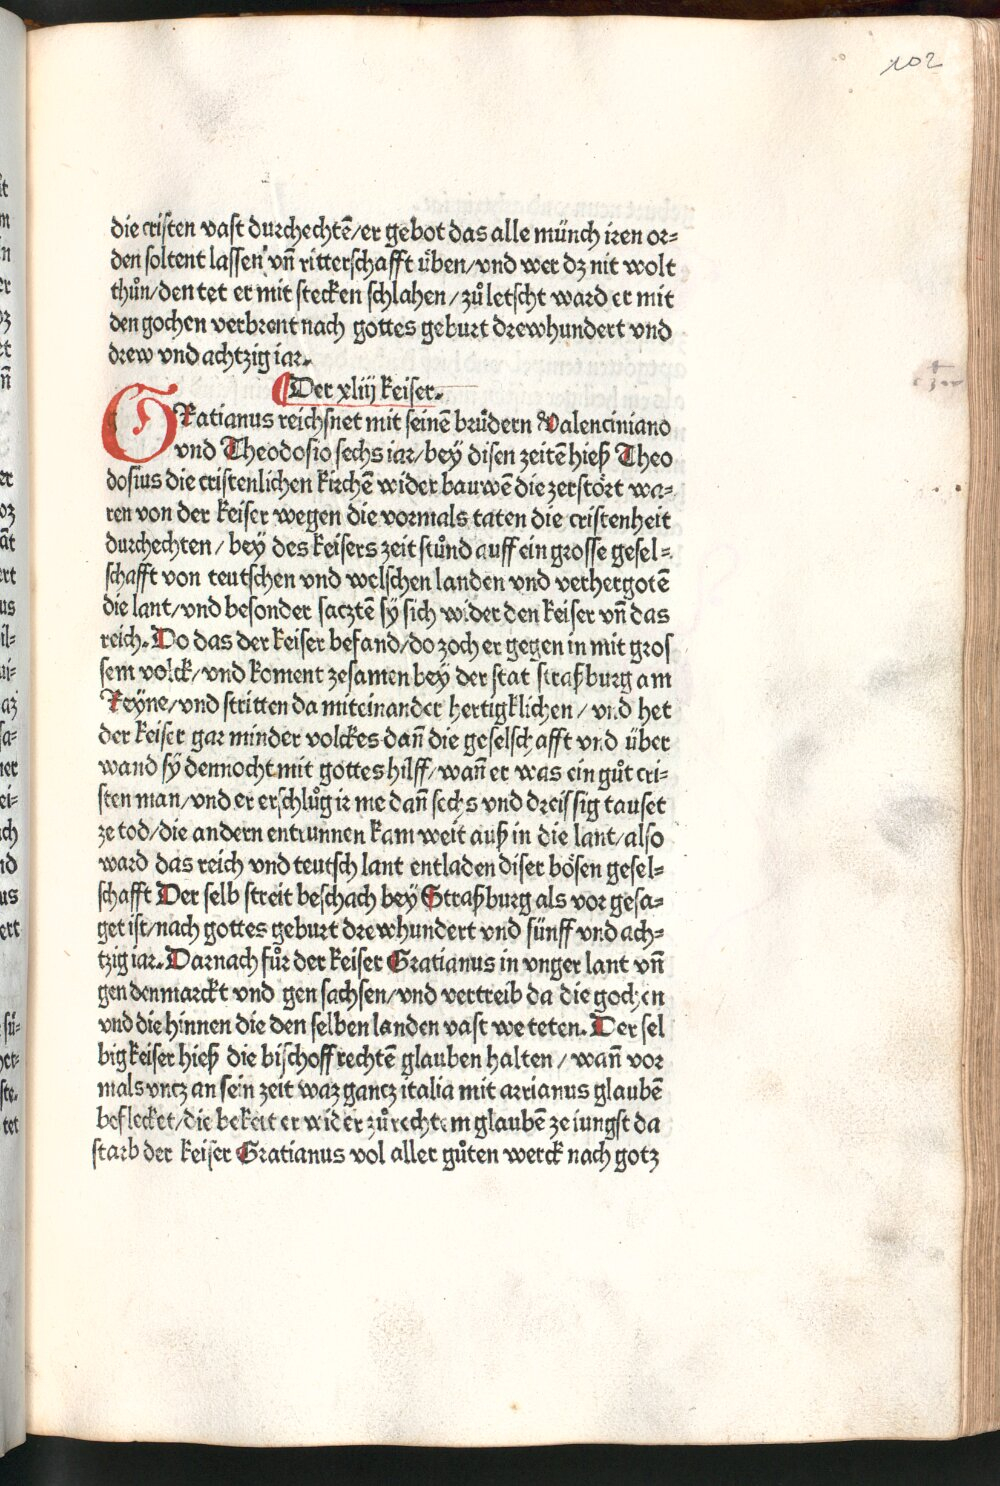 102
die cristen vast durchechtē/er gebot das alle münch iren or=
den soltent lassen vñ ritterschafft üben/vnd wer dz nit wolt
thůn/den tet er mit stecken schlahen/zůletscht ward er mit
den gochen verbrent nach gottes geburt drewhundert vnd
drew vnd achtzig iar.
¶Der xliij keiser.
GRatianus reichsnet mit seinē brüdern Valenciniano
vnd Theodosio sechs iar/bey disen zeitē hieß Theo
dosius die cristenlichen kirchē wider bauwē die zerstört wa=
ren von der keiser wegen die vormals taten die cristenheit
durchechten/bey des keisers zeit stůnd auff ein grosse gesel=
schafft von teutschen vnd welschen landen vnd verhergotē
die lant/vnd besonder sacztē sÿ sich wider den keiser vñ das
reich. Do das der keiser befand/do zoch er gegen in mit gros
sem volck/vnd koment zesamen bey der stat straßburg am
Reÿne/vnd stritten da miteinander hertigklichen/vnd het
der keiser gar minder volckes dañ die geselschafft vnd über
wand sÿ dennocht mit gottes hilff/wañ er was ein gůt cri=
sten man/vnd er erschlůg ir me dañ sechs vnd dreissig tauset
ze tod/die andern entrunnen kam weit auß in die lant/also
ward das reich vnd teutsch lant entladen diser bösen gesel=
schafft Der selb streit beschach beÿ Straßburg als vor gesa=
get ist/nach gottes geburt drewhundert vnd fünff vnd ach=
tzig iar. Darnach fůr der keiser Gratianus in vnger lant vñ
gen denmarckt vnd gen sachsen/vnd vertreib da die gochen
vnd die hinnen die den selben landen vast we teten. Der sel
big keiser hieß die bischoff rechtē glauben halten/wañ vor
mals vncz an sein zeit waz gantz italia mit arrianus glaubē
beflecket/die bekert er wider zů rechtem glaubē ze iungst da
starb der keiser Gratianus vol aller gůten werck nach gotz